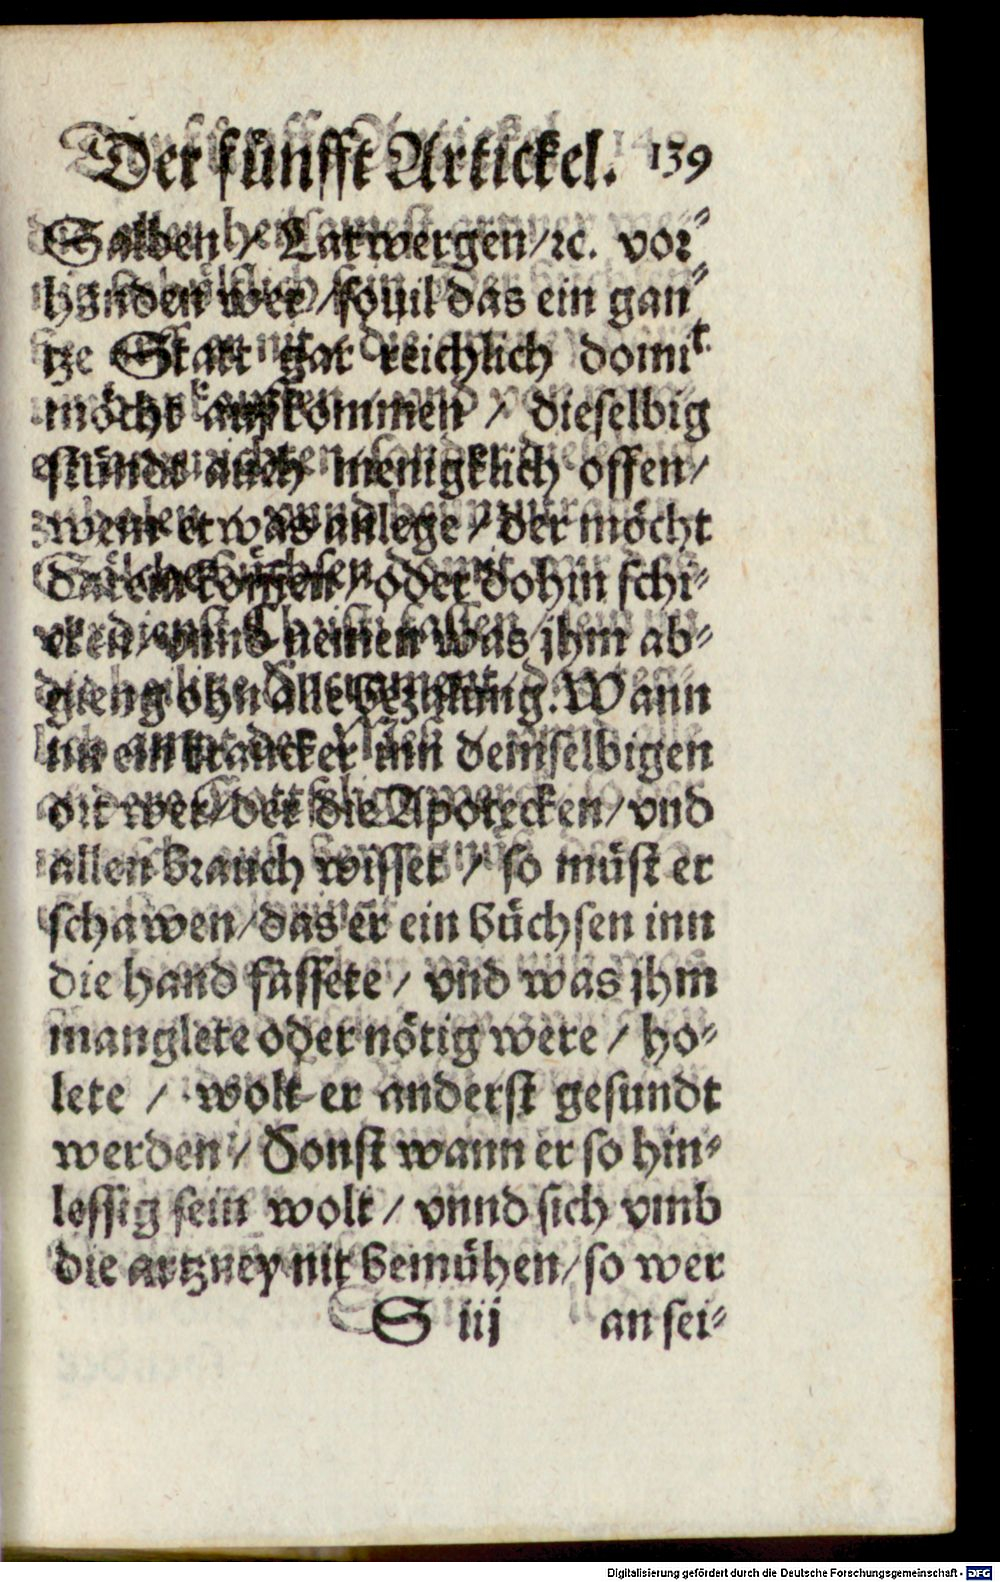 Der fünfft Artickel. 139
Salben / Latwergen / ꝛc. vor⸗
handen wer / souil das ein gan⸗
tze Statt gar reichlich domit
möcht außkommen / dieselbig
stünde auch menigklich offen /
wem etwas anlege / der möcht
darein oder dohin schi⸗
cken / vnnd nemen was jhm ab⸗
gieng ohn alle bezalung. Wann
nu ein krancker inn demselbigen
ort wer / der die Apotecken / vnd
allen brauch wisset / so müst er
schawen / das er ein büchsen inn
die hand fassete / vnd was jhm
manglete oder nötig were / ho⸗
lete / wolt er anderst gesundt
werden / Sonst wann er so hin⸗
lessig sein wolt / vnnd sich vmb
die artzney nit bemühen / so wer
S iij an sei⸗
Digitalisierung gefördert durch die Deutsche Forschungsgemeinschaft - DFG